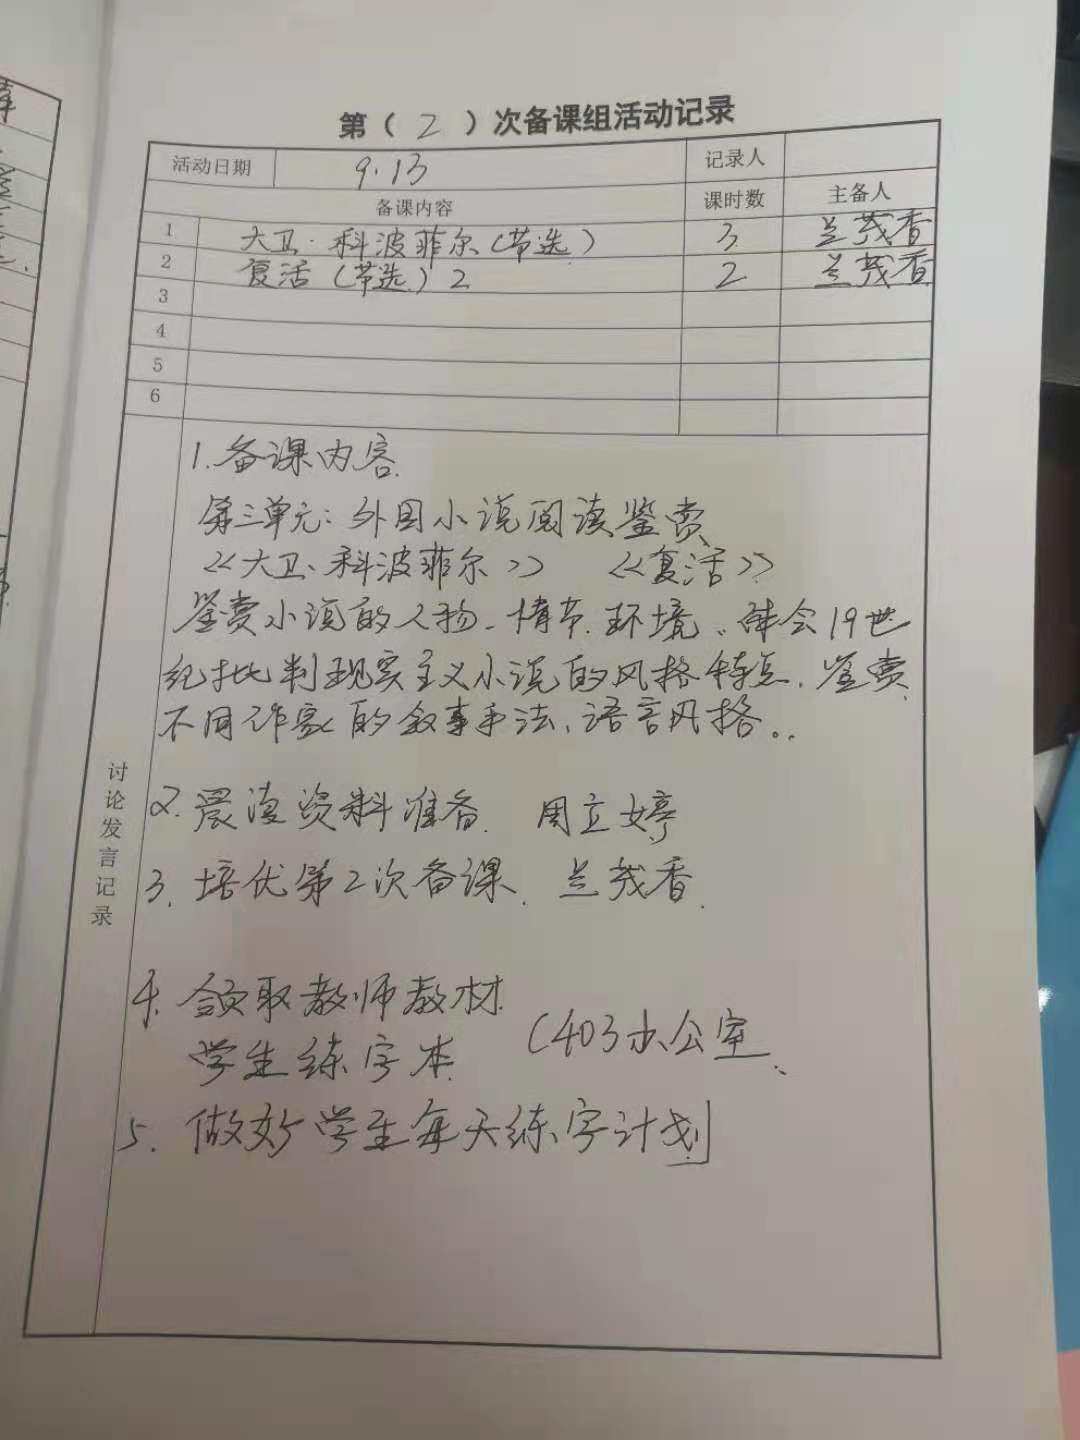 第（ 2 ）次备课组活动记录
活动日期 9.13 记录人
备课内容 课时数 主备人
1 大卫·科波菲尔（节选） 3 兰茂香
2 复活（节选）2 2 兰茂香
3
4
5
6
讨论发言记录
1.备课内容
第三单元：外国小说阅读鉴赏
《大卫·科波菲尔》 《复活》
鉴赏小说的人物、情节、环境、体会19世
纪批判现实主义小说的风格特点，鉴赏
不同作家的叙事手法、语言风格。
2.晨读资料准备 周立婷
3.培优第2次备课 兰茂香
4.领取教师教材
学生练字本 （403办公室
5.做好学生每天练字计划